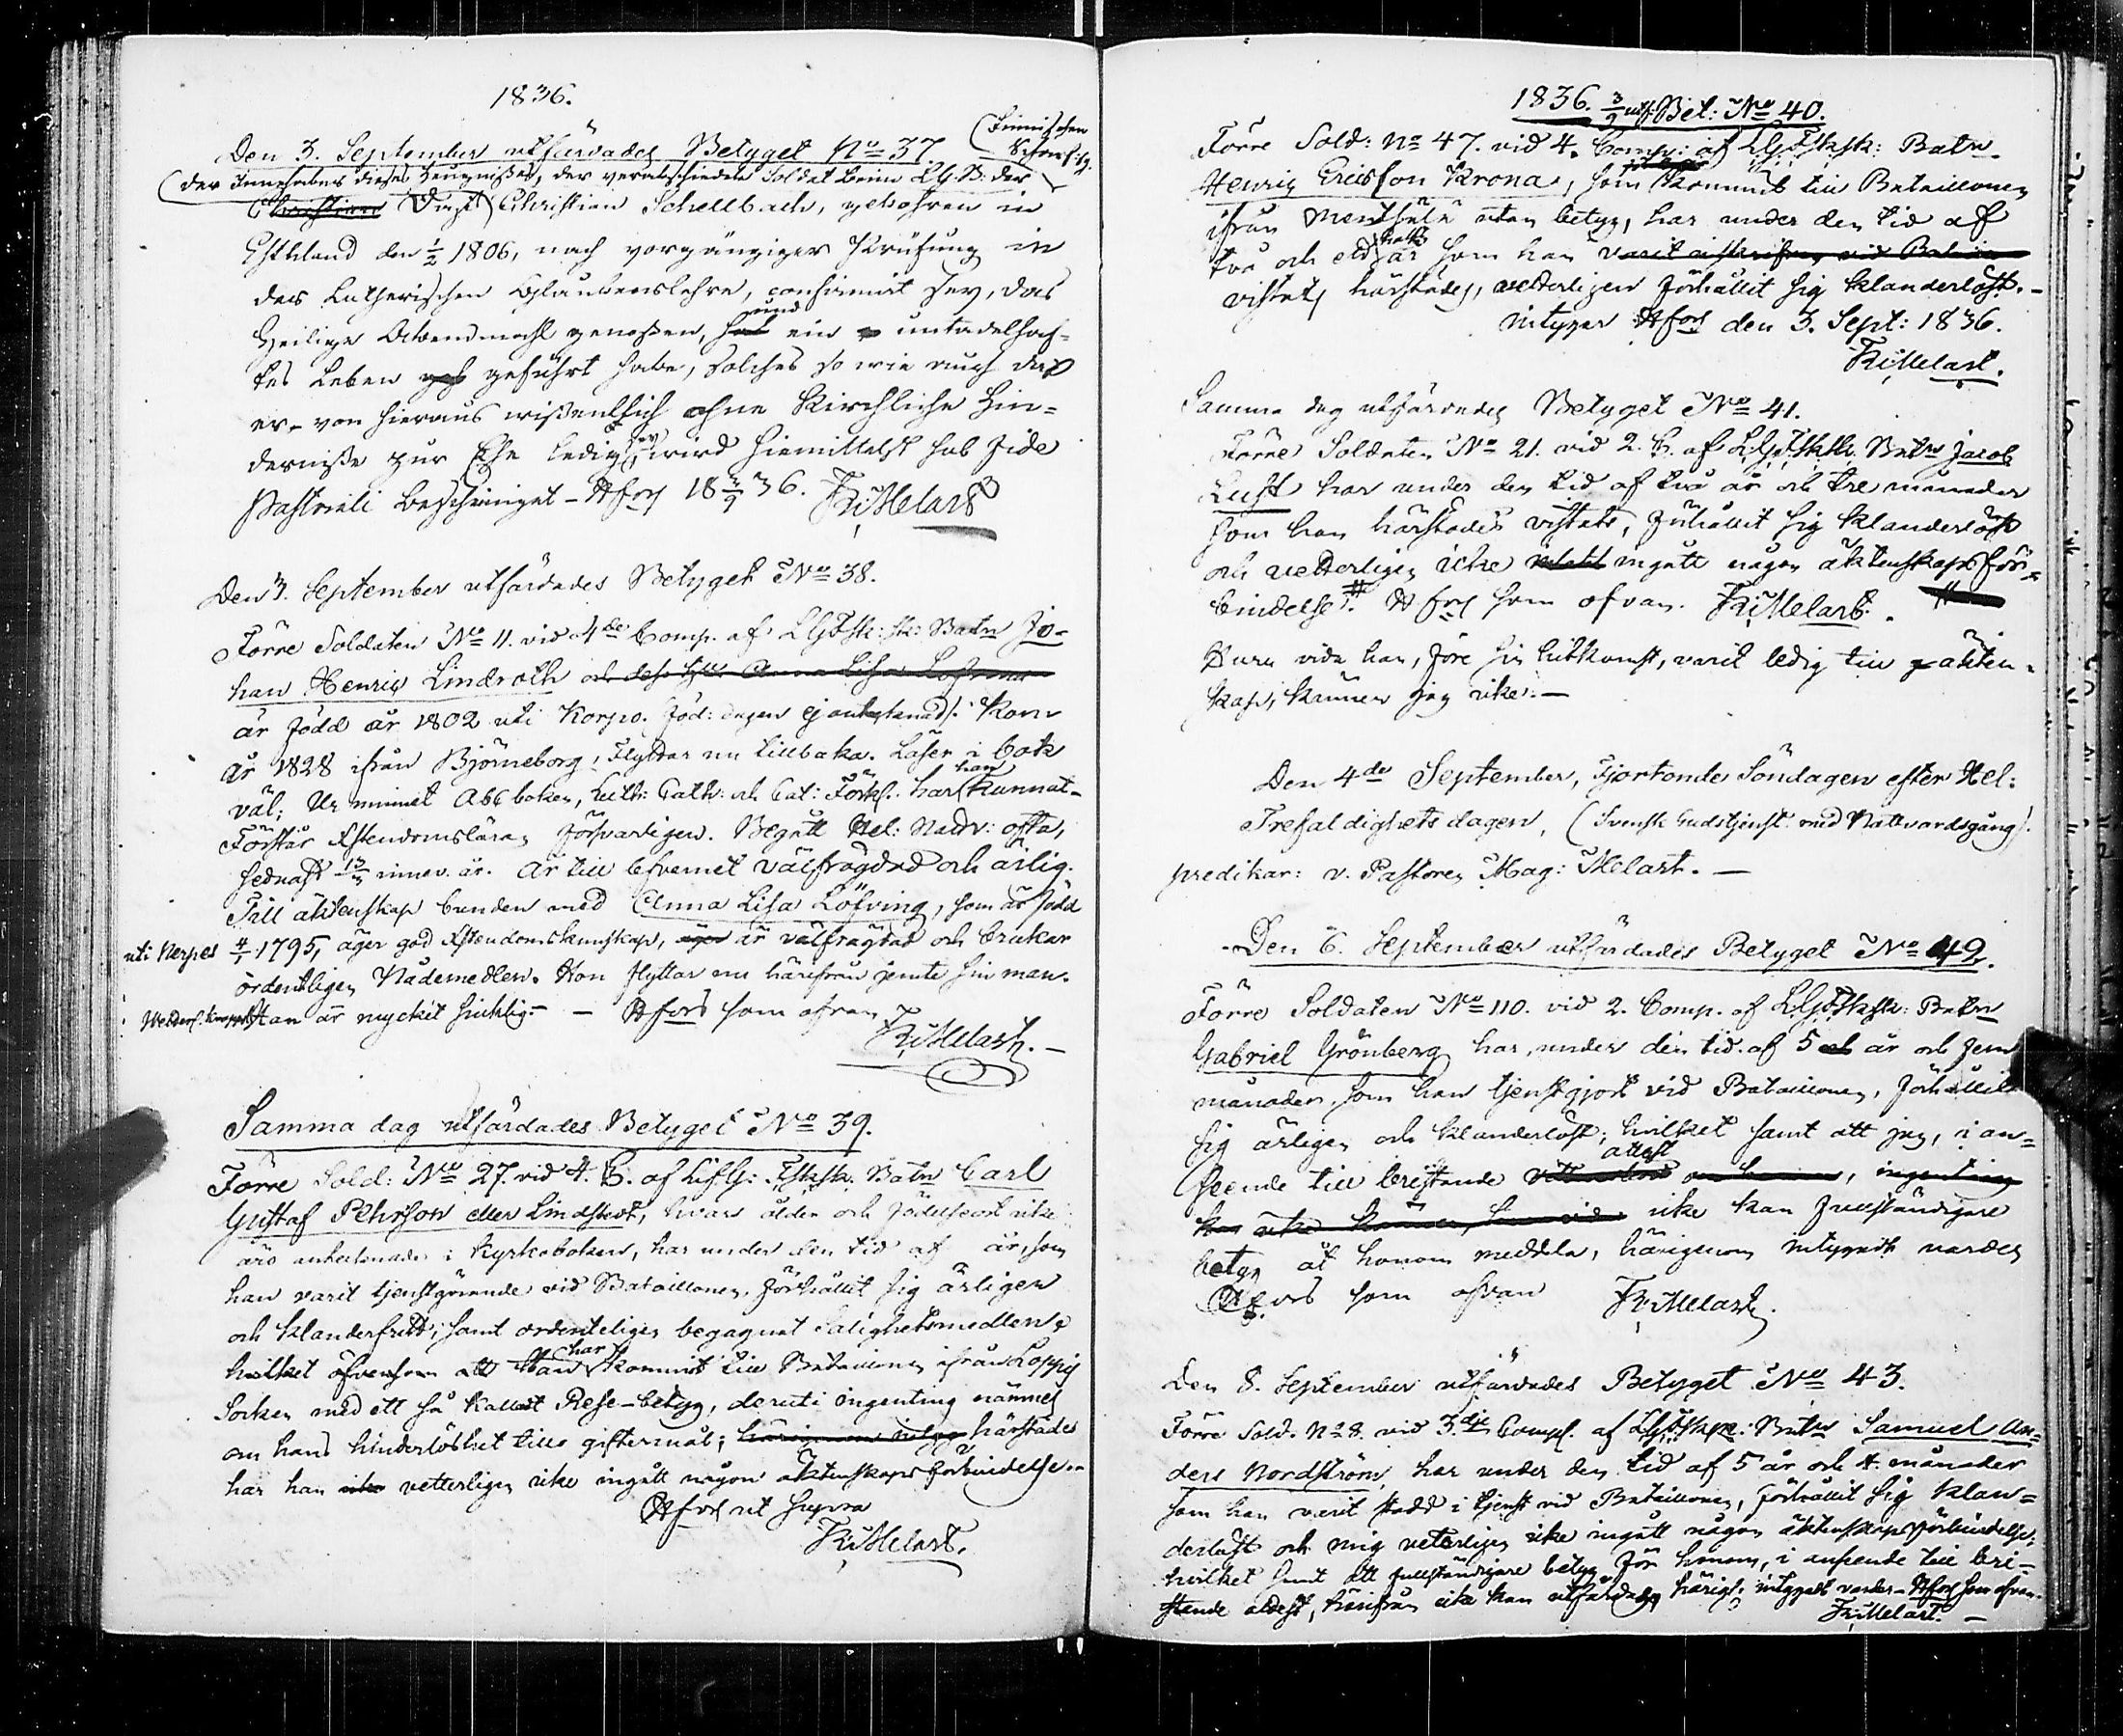 1836.
Den 3. September utfärdades Betyget No 37.
(Finnischen
Scharfsch.
(der Innehaber dieses Zeugnißes, der verabschiedete Soldat beim LG. B: der
Christian Schellbach, gebohren in
Esthland den 1/2 1806, nach vorgängiger Prüfung in
der Lutherischen Glaubenslehre, confirmirt sey, das
Heilige Abendmahl genoßen, und ein untadelhaf-
tes Leben geführt habe, solches so wie auch daß
er von hieraus wißentlich ohne Kirchliche Hin-
derniße zur Ehe ledig sey wird hiemittelst sub fide
Pastorali bescheiniget - Hfors 18 3/9 36. FR: Melart
Den 3. September utfärdades Betyget No 38.
Förre Soldaten No 11. vid 4de Comp. af LGFsk: sk: Batn Jo-
han Henric Lindroth och dess hu Anna Lisa Löfving
är född år 1802 uti Korpo. föd: dagen ej antecknad. Kom
År 1828 ifrån Björneborg, Flyttar nu tillbaka. Läser i bok
väl; Ur minnet Abc boken, Luth: Cath: och Cat: Förkl. har han kunnat -
Förstår Xstendomsläran försvarligen. Begått HEL: Nattv: ofta,
sednast 13/3 innev. år. Är till lefvernet välfrägdad och ärlig.
Till äktenskap bunden med Anna Lisa Löfving, som är född
uti Nerpes 4/1 1795, äger god Xstendomskunskap, är välfrägdad och brukar
ordentligen Nådemedlen. Hon flyttar nu härifrån jemte sin man.
Han är mycket sinklig. - Hfors som ofvan
FR: Melart. -
Samma dag utfärdades Betyget No 39.
Förre Sold: No 27. vid 4. C. af Lif G: Fsksk. Batn Carl
Gustaf Pehrson eller Lindstedt, hvars ålder och födelseort icke
äro antecknade i kyrkoboken, har under den tid af år, som
han varit tjenstgörande vid Bataillonen, förhållit sig ärligen
och klanderfritt; samt ordenteligen begagnat Salighetsmedlen,
hvilket äfvensom att Han har kommit till Bataillonen ifrån Loppis
Socken med ett så kallat Rese-betyg, deruti ingenting nämnes
om hans hinderlöshet till giftermål; härigenom intyg härstädes
har han icke vetterligen icke ingått någon äktenskaps förbindelse. -
Hfors ut supra
FR: Melart.
1836. 3/9 utf. Bet: No 40.
Förre Sold: No 47. vid 4. Comp: af LGFsksk: Batn
Henric Ericsson Krona, som kommit till Bataillonen
ifrån Mäntsälä utan betyg, har under den tid af
två och ett halft år som han varit inskrifven vid Batn
vistats härstädes, vetterligen förhållit sig klanderlöst. -
intygar Hfors den 3. Sept: 1836.
FR: Melart.
Samma dag utfärdades Betyget No 41.
Förre Soldaten No 21. vid 2. C. af L.G.Fsksk. Batn Jacob
Lust har under den tid af två år och tre månader
som han härstädes vistats, förhållit sig klanderlöst
och vetterligen icke ingått någon äktenskapsför-
bindelse. # Hfors som ofvan. FR: Melart. #
Huru vida han, före sin hitkomst, varit ledig till äkten-
skap, känner jag icke. -
Den 4de September, Fjortonde Söndagen efter Hel:
Trefaldighets dagen, (Svensk Gudstjenst med Nattvardsgång).
predikar: v. Pastoren Mag: Melart. -
Den 6. September utfärdades Betyget No 42.
Förre Soldaten No 110. vid 2. Comp. af LGFsksk: Batn
Gabriel Grönberg har, under den tid af 5 år och fem
månader, som han tjenstgjort vid Bataillonen, förhållit
sig ärligen och klanderlöst; hvilket samt att jag, i an-
seende till bristande attest , ingenting
icke kan fullständigare
betyg åt honom meddela, härigenom intygadt warder
Hfors som ofvan FR: Melart.
Den 8. September utfärdades Betyget No 43.
Förre Sold. No 8. vid 3dje Comp. af LGFsksk: Batn Samuel An-
ders Nordström, har under den tid af 5 år och 4. månader
som han varit stadd i tjenst vid Bataillonen, förhållit sig klan-
derlöst och mig veterligen icke ingått någon äktenskapsförbindelse,
hvilket samt att fullständigare betyg för honom, i anseende till bri-
stande attest, härifrån icke kan utfärdas, härig: intygadt varder - Hfors som ofvan.
FR: Melart. -